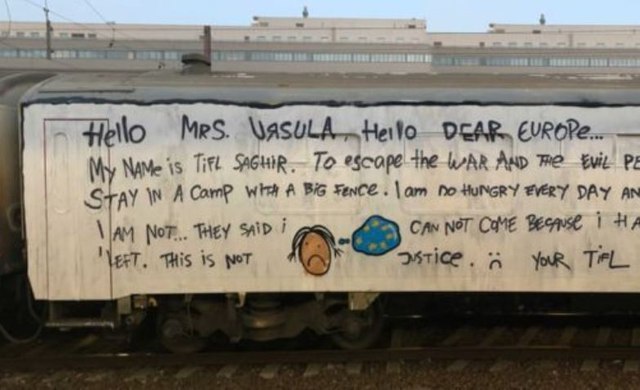 Hello MRS. URSULA. Hello DEAR EUROPE...
MY NAMe is TiFL SAGHiR. To escape the WAR AND THE EViL PE
STAY IN A CAMP WITH A BIG FENCE. I am no HUNGRY EVERY DAY AN
I AM NOT... THEY SAiD i CAN NOT COME BECAUSE i HA
LEFT. THiS iS NOT JUSTiCE. YOUR TiFL